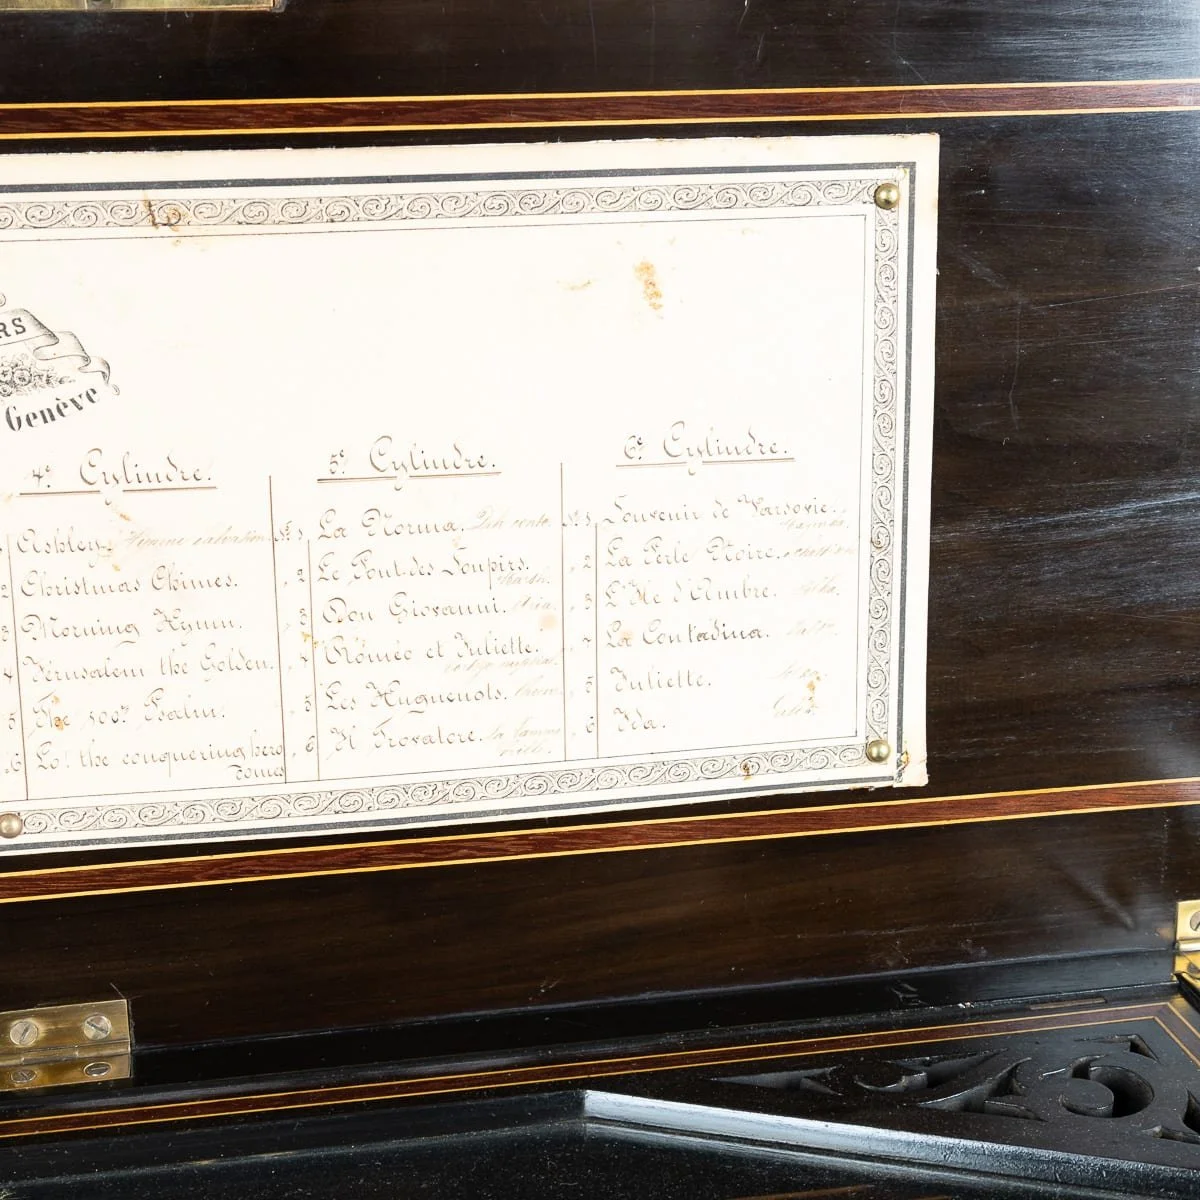 RS
Genève
4e Cylindre.
Ashley.
2 Christmas Chimes.
3 Morning Hymn.
4 Jérusalem the Golden.
5 The 100th Psalm.
6 Lo! the conquering hero
comes
5e Cylindre.
No 1 La Norma.
2 Le Pont des Soupirs.
3 Don Giovanni. Aria.
4 Roméo et Juliette.
5 Les Huguenots.
6 Il Trovatore.
6e Cylindre.
No 1 Souvenir de Varsovie.
Mazurka.
2 La Perle Noire.
3 L'Ile d'Ambre. Polka.
4 La Contadina.
5 Juliette.
6 Ida.